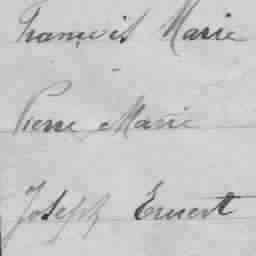 François Marie
Pierre Marie
Joseph Ernest